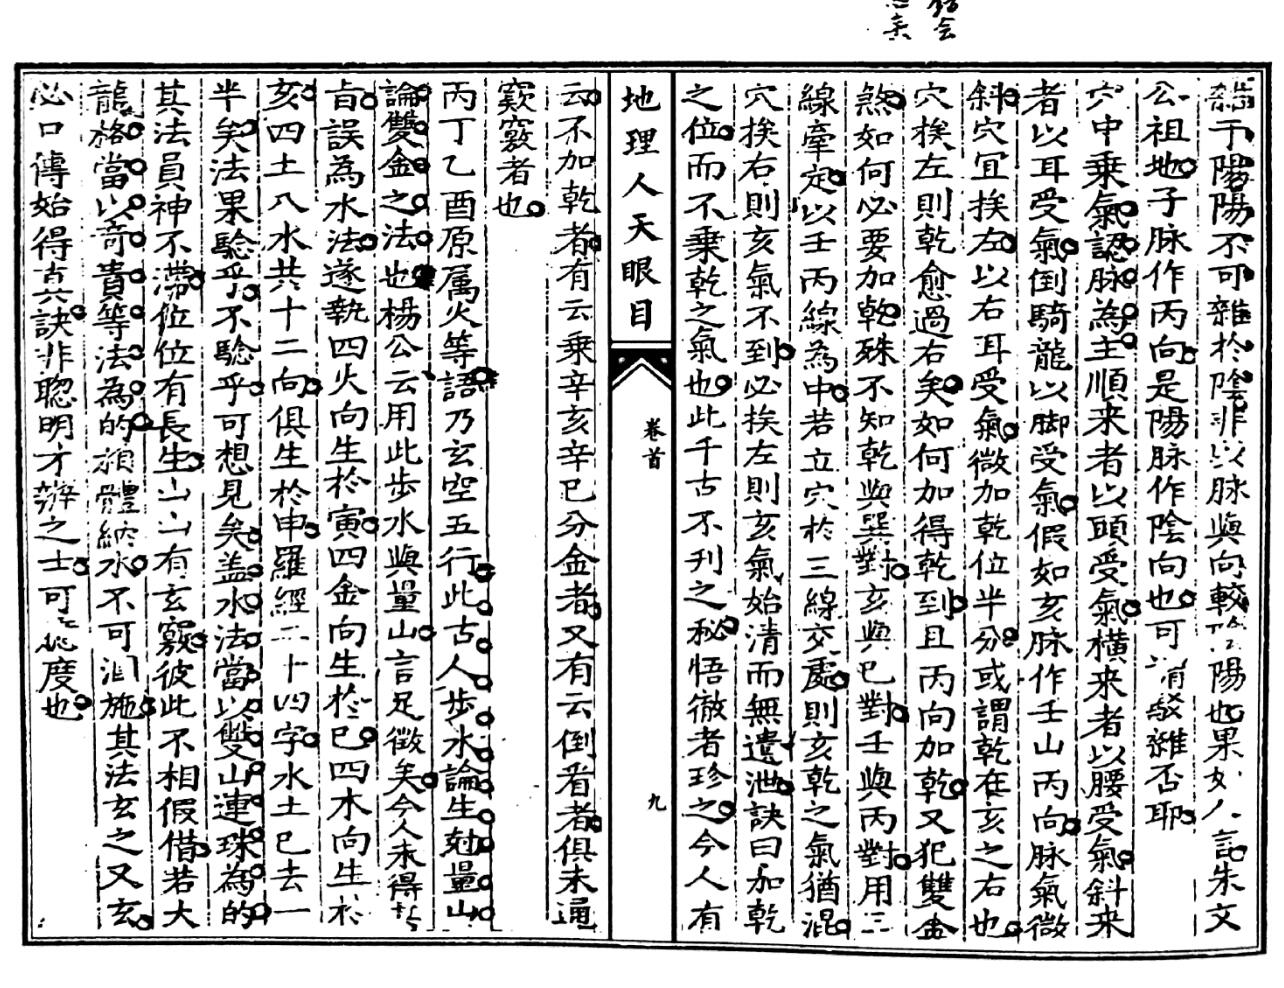 雜于陽陽不可雜於陰非以脉與向較陰陽也果如人言朱文
公祖地子脉作丙向是陽脉作陰向也可謂駁雜否耶
穴中乗氣認脉為主順来者以頭受氣横来者以腰受氣斜来
者以耳受氣倒騎龍以脚受氣假如亥脉作壬山丙向脉氣微
斜穴宜挨左以右耳受氣微加乾位半分或謂乾在亥之右也
穴挨左則乾愈過右矣如何加得乾到且丙向加乾又犯雙金
煞如何必要加乾殊不知乾與巽對亥與巳對壬與丙對用三
線牽定以壬丙線為中若立穴於三線交處則亥乾之氣猶混
穴挨右則亥氣不到必挨左則亥氣始清而無遺泄訣曰加乾
之位而不乗乾之氣也此千古不刋之秘悟徹者珍之今人有
地理人天眼目
卷首
九
云不加乾者有云乗辛亥辛巳分金者又有云倒看者俱未通
竅竅者也
丙丁乙酉原属火等語乃玄空五行此古人步水論生尅量山
論雙金之法也楊公云用此步水與量山言足徵矣今人未得
旨誤為水法遂執四火向生於寅四金向生於巳四木向生於
亥四土八水共十二向俱生於申羅經二十四字水土已去一
半矣法果騐乎不騐乎可想見矣盖水法當以雙山連珠為的
其法員神不滯位位有長生山山有玄竅彼此不相假借若大
龍格當以奇貴等法為的相體納水不可泪施其法玄之又玄
必口傳始得真訣非聰明才辨之士可 度也